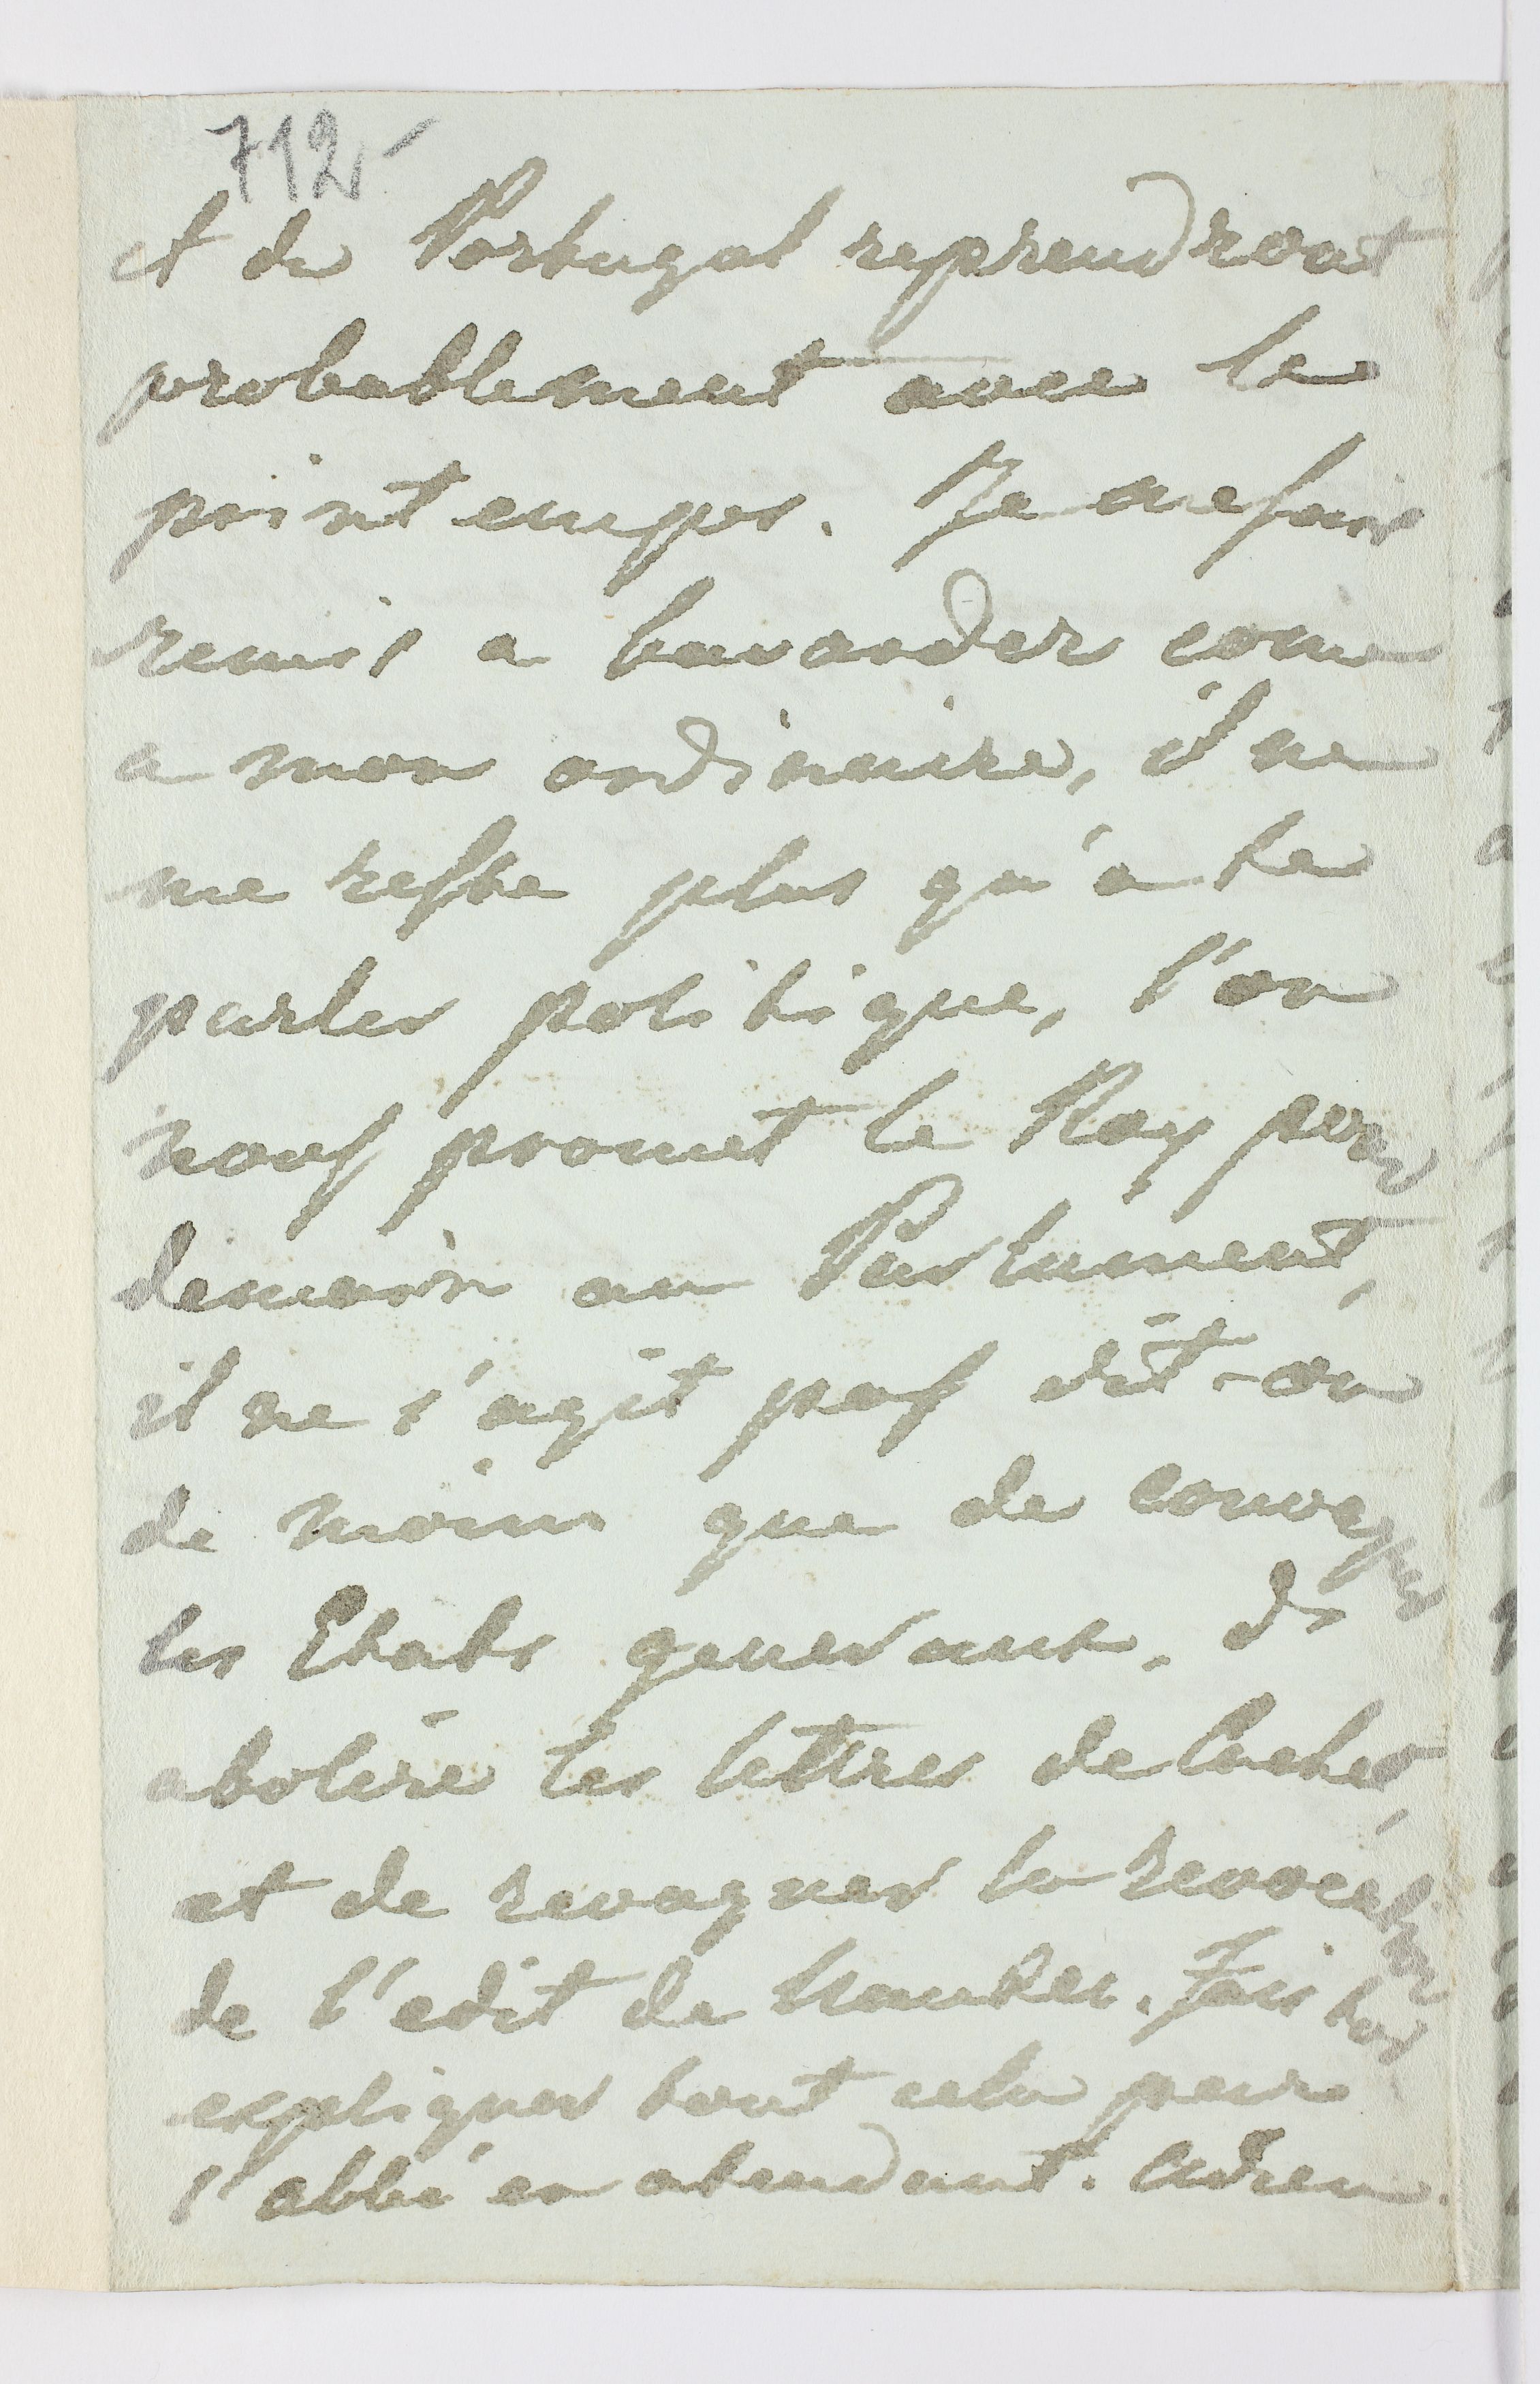 712
et de Portugal reprendront
probablement avec le
printemps. Je me suis
remis a bavarder come
a mon ordinaire, il ne
me reste plus qu'a te
parler politique, l'on
nous promet le Roy pour
demain au Parlament,
il ne s'agit pas dit-on
de moins que de convoquer
les Etats generaux, d'
abolire les lettres de Cachet,
et de revoquer la revocation
de l'edit de Nantes. Fais toi
expliquer tout cela par
l'abbé en atendant. Adieu.